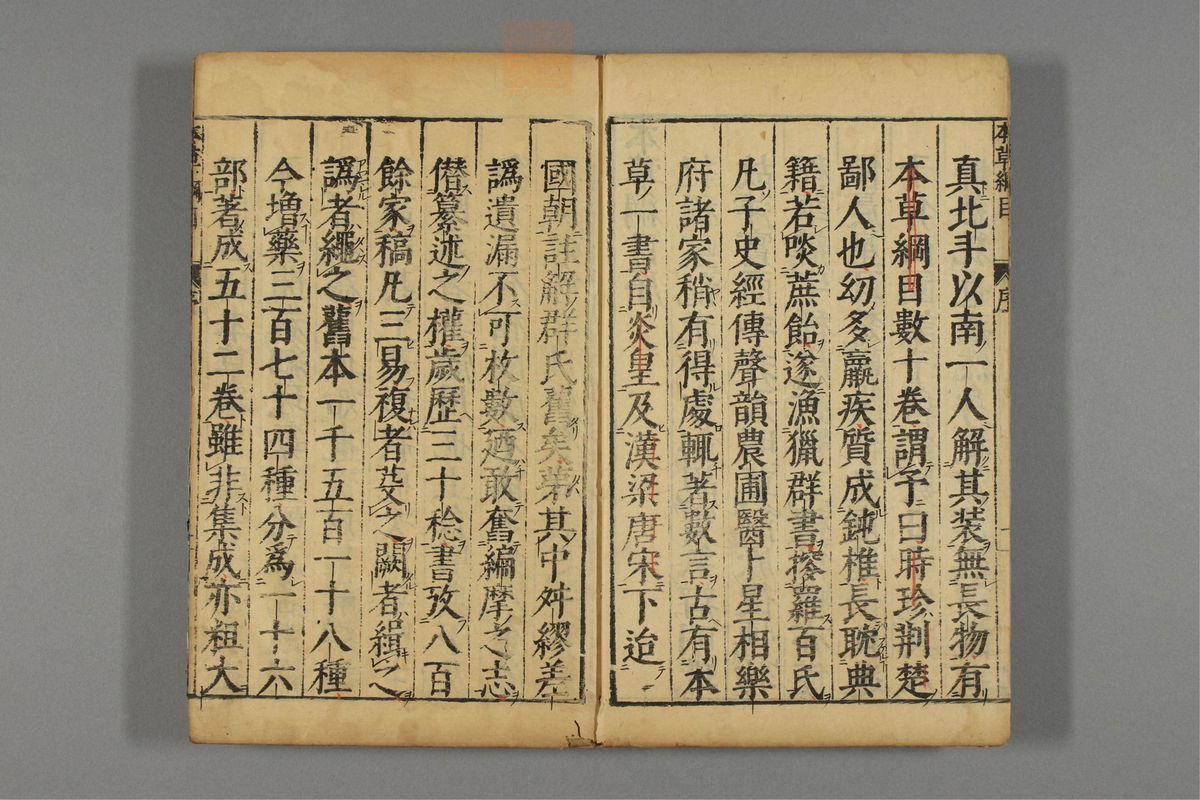 本草綱目 序
真北斗以南一人解其装無長物有
本草綱目數十卷謂予曰時珍荆楚
鄙人也幼多羸疾質成鈍椎長耽典
籍若啖蔗飴遂漁獵群書搜羅百氏
凡子史經傳聲韻農圃醫卜星相樂
府諸家稍有得處輒著數言古有本
草一書自炎皇及漢梁唐宋下迨
國朝註解群氏舊矣第其中舛繆差
譌遺漏不可枚數廼敢奮編摩之志
僭纂述之權歲歷三十稔書攷八百
餘家稿凡三易複者芟之闕者緝之
譌者繩之舊本一千五百一十八種
今增藥三百七十四種分爲一十六
部著成五十二卷雖非集成亦粗大